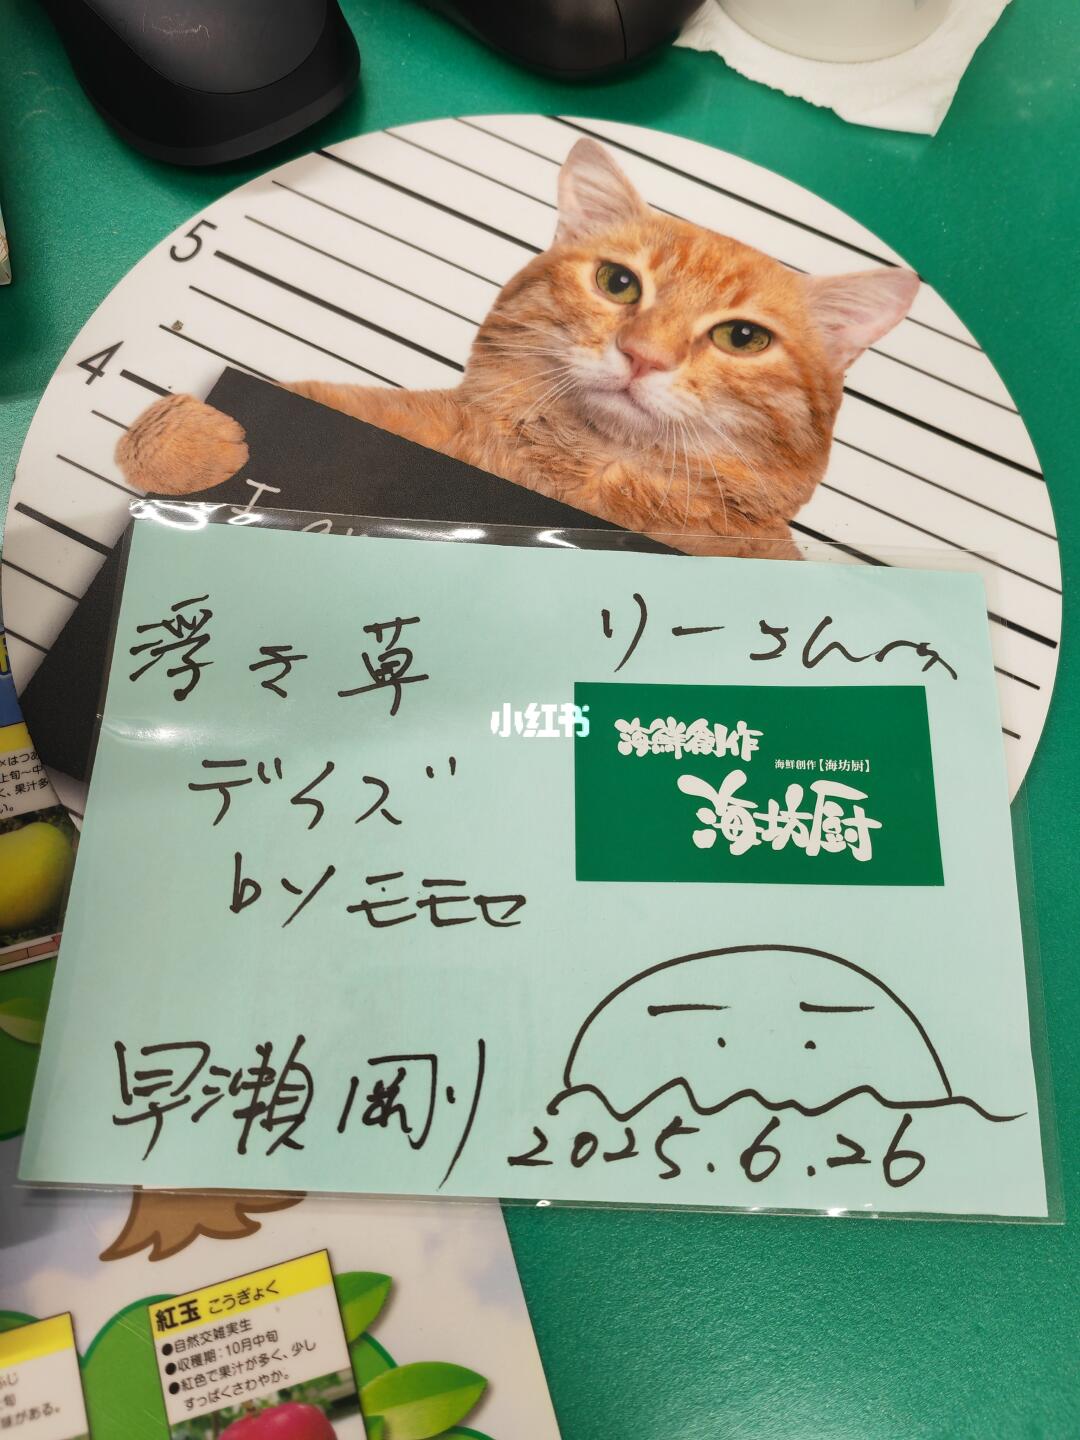 5
4
I
浮き草
デイズ
by モモセ
早瀬 剛
りーさんへ
海鮮創作
海鮮創作【海坊厨】
海坊厨
2025.6.26
小红书
紅玉 こうぎょく
●自然交雑実生
●収穫期：10月中旬
●紅色で果汁が多く、少し
すっぱくさわやか。
×はつあ
上旬～中
く、果汁多
い。
ふじ
旬
味がある。